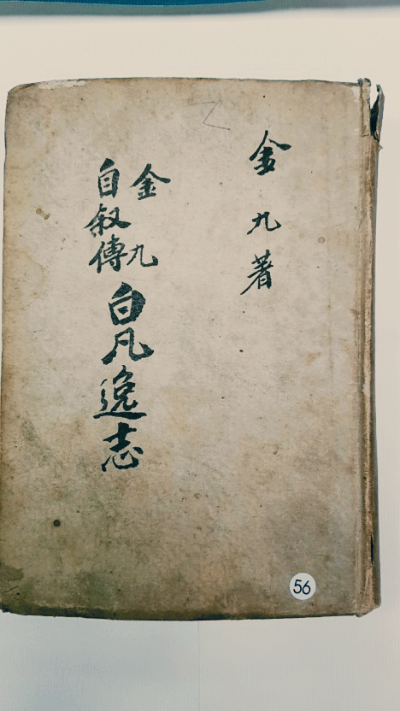 金九著
金九
自叙傳
白凡逸志
56